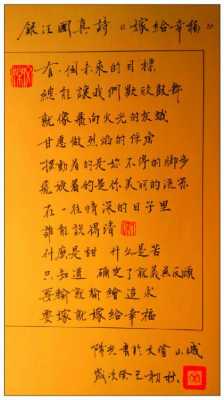 錄汪國真詩“嫁給幸福”
有一個未來的目標
總能讓我們歡欣鼓舞
就像飛向火光的灰蛾
甘愿做烈焰的俘虜
擺動着的是你不停的脚步
飛旋着的是你美麗的流蘇
在一往情深的日子里
誰能説得清
什麽是甜 什么是苦
只知道 確定了就義無反顧
要輸就輸給追求
要嫁就嫁給幸福
歲次癸巳初秋